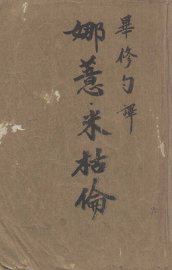 畢修勺譯
娜薏·米枯倫